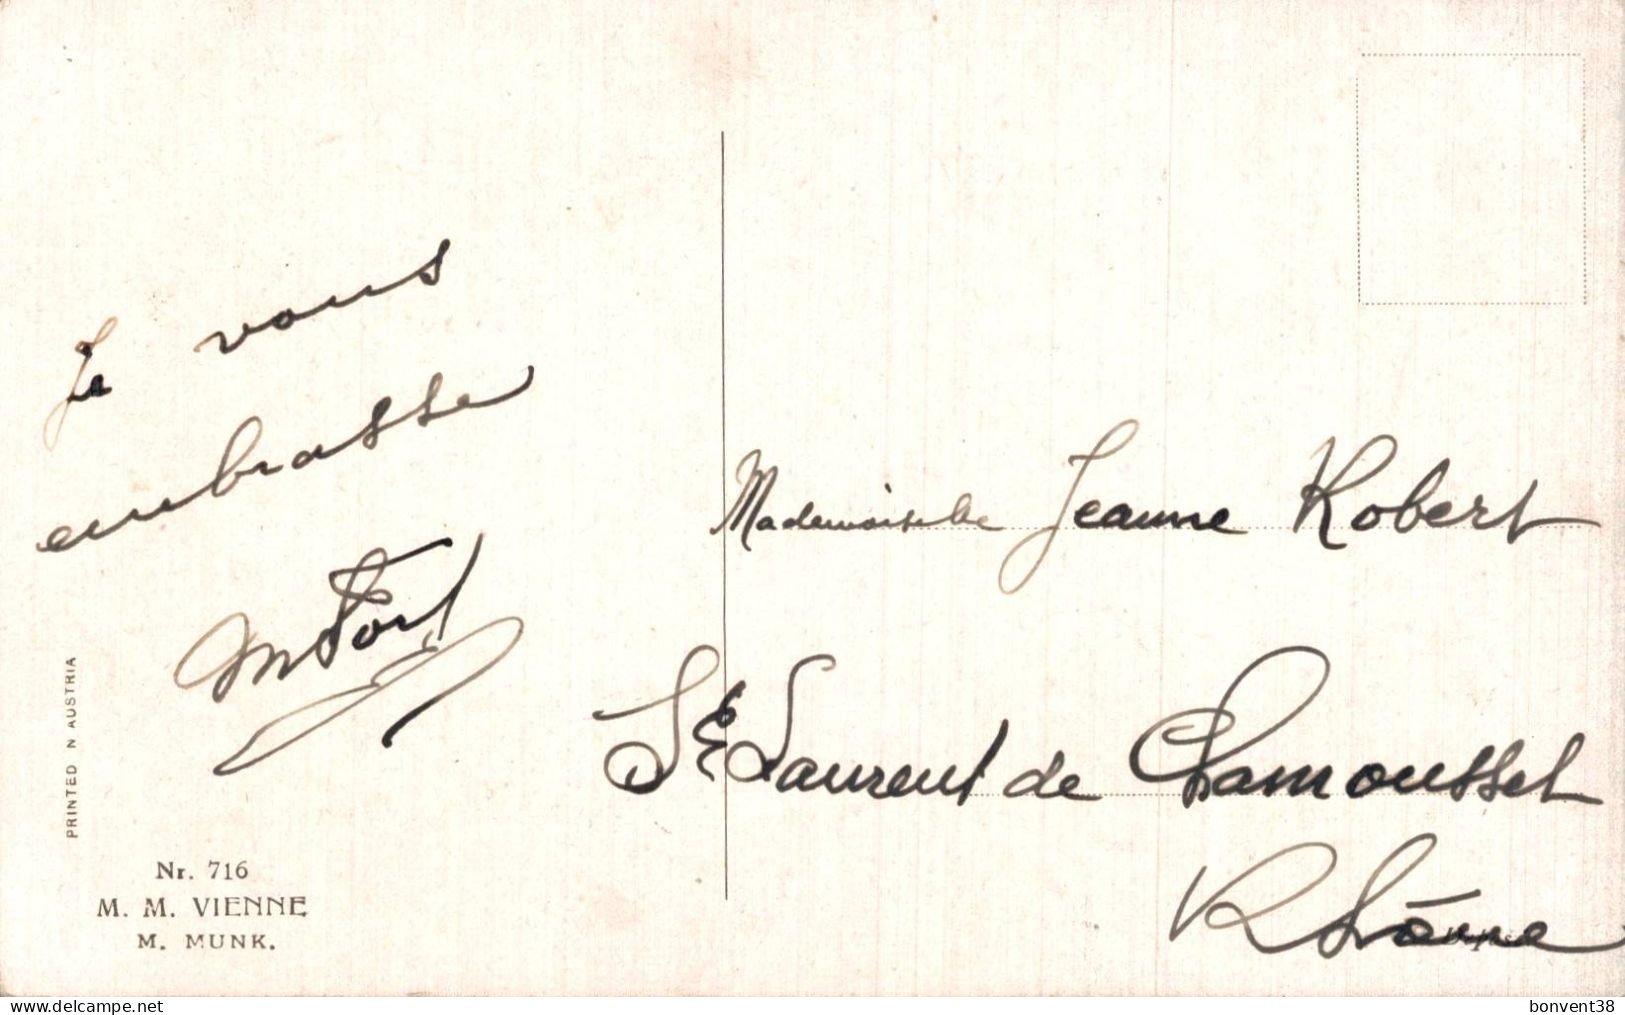 Je vous
embrasse
M Fort
PRINTED N AUSTRIA
Nr. 716
M. M. VIENNE
M. MUNK.
Mademoiselle Jeanne Robert
St Laurent de Chamousset
Rhône
bonvent38